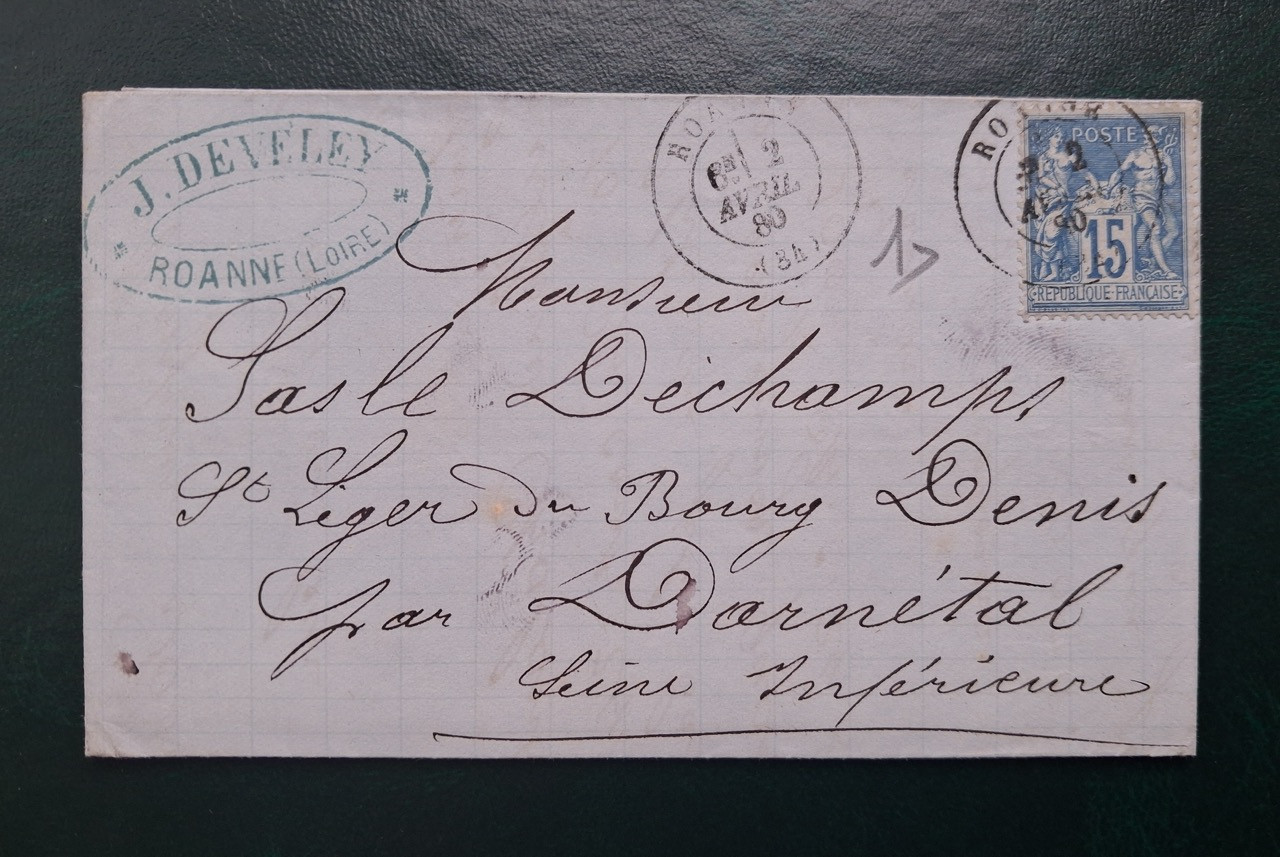 J. DEVELEY
ROANNE (LOIRE)
ROANNE
6E 2
AVRIL
80
(84)
1>
RO
2
80
POSTE
15
REPUBLIQUE FRANÇAISE
Monsieur
Sasle Déchamps
St Léger du Bourg Denis
par Darnétal
Seine Inférieure